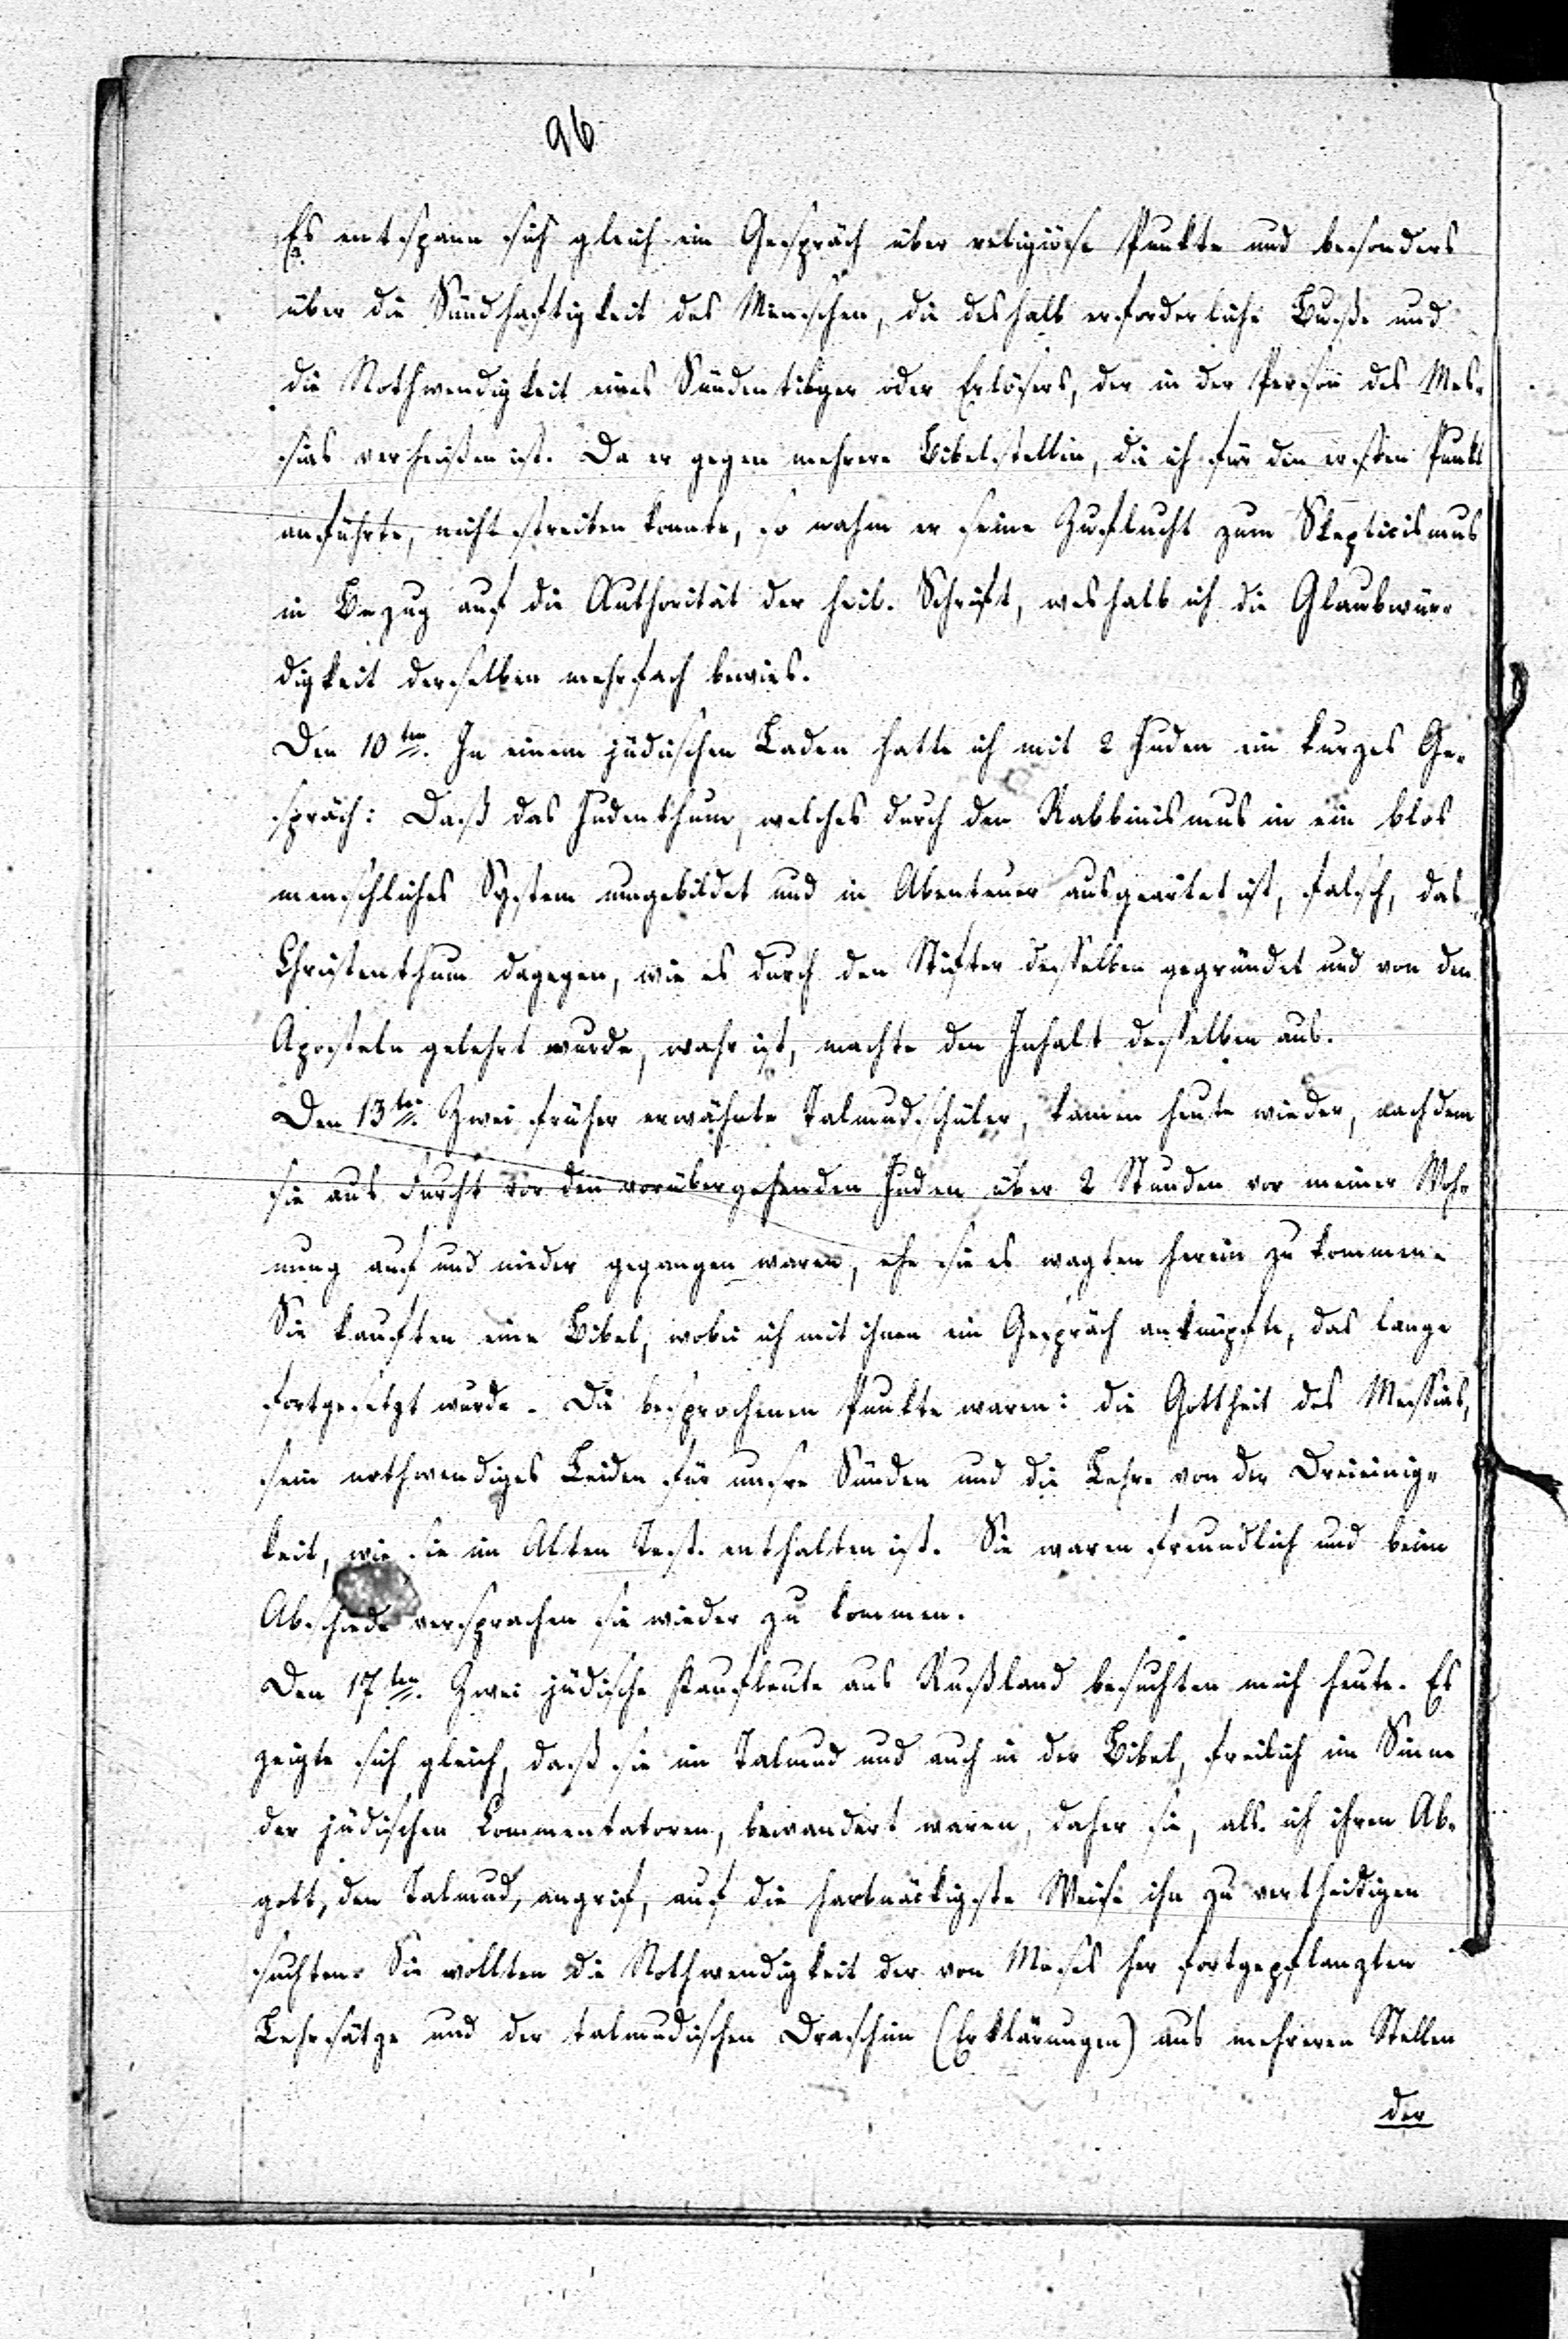 96
Es entspann sich gleich ein Gespräch über religiöse Punkte und besonders
über die Sündhaftigkeit des Menschen, die deshalb erforderliche Buße und
die Nothwendigkeit eines Sündentilger oder Erlösers, der in der Person des Mes-
sias verheißen ist. Da er gegen mehrere Bibelstellen, die ich für den ersten Punkt
anführte, nicht streiten konnte, so nahm er seine Zuflucht zum Skepticismus
in Bezug auf die Authorität der heil. Schrift, weshalb ich die Glaubwür-
digkeit derselben mehrfach bewies.
Den 10ten. In einem jüdischen Laden hatte ich mit 2 Juden ein kurzes Ge-
spräch: Daß das Judenthum, welches durch den Rabbinismus in ein blos
menschliches System umgebildet und in Abenteuer ausgeartet ist, falsch, das
Christenthum dagegen, wie es durch den Stifter desselben gegründet und von den
Aposteln gelehrt wurde, wahr ist, machte den Inhalt desselben aus.
Den 13ten. Zwei früher erwähnte Talmudschüler, kamen heute wieder, nachdem
sie aus Furcht vor den vorübergehenden Juden über 2 Stunden vor meiner Woh-
nung auf und nieder gegangen waren, ehe sie es wagten herein zu kommen.
Sie kauften eine Bibel, wobei ich mit ihnen ein Gespräch anknüpfte, das lange
fortgesetzt wurde. Die besprochenen Punkte waren: die Gottheit des Messias,
sein nothwendiges Leiden für unsre Sünden und die Lehre von der Dreieinig-
keit, wie sie im Alten Test. enthalten ist. Sie waren freundlich und beim
Abschiede versprachen sie wieder zu kommen.
Den 17ten. Zwei jüdische Kaufleute aus Rußland besuchten mich heute. Es
zeigte sich gleich, daß sie im Talmud und auch in der Bibel, freilich im Sinne
der jüdischen Commentatoren, bewandert waren, daher sie, als ich ihren Ab-
gott, den Talmud, angrif, auf die hartnäckigste Weise ihn zu vertheidigen
suchten. Sie wollten die Nothwendigkeit der von Moses her fortgepflanzten
Lehrsätze und der talmudischen Draschim (Erklärungen) aus mehreren Stellen
der